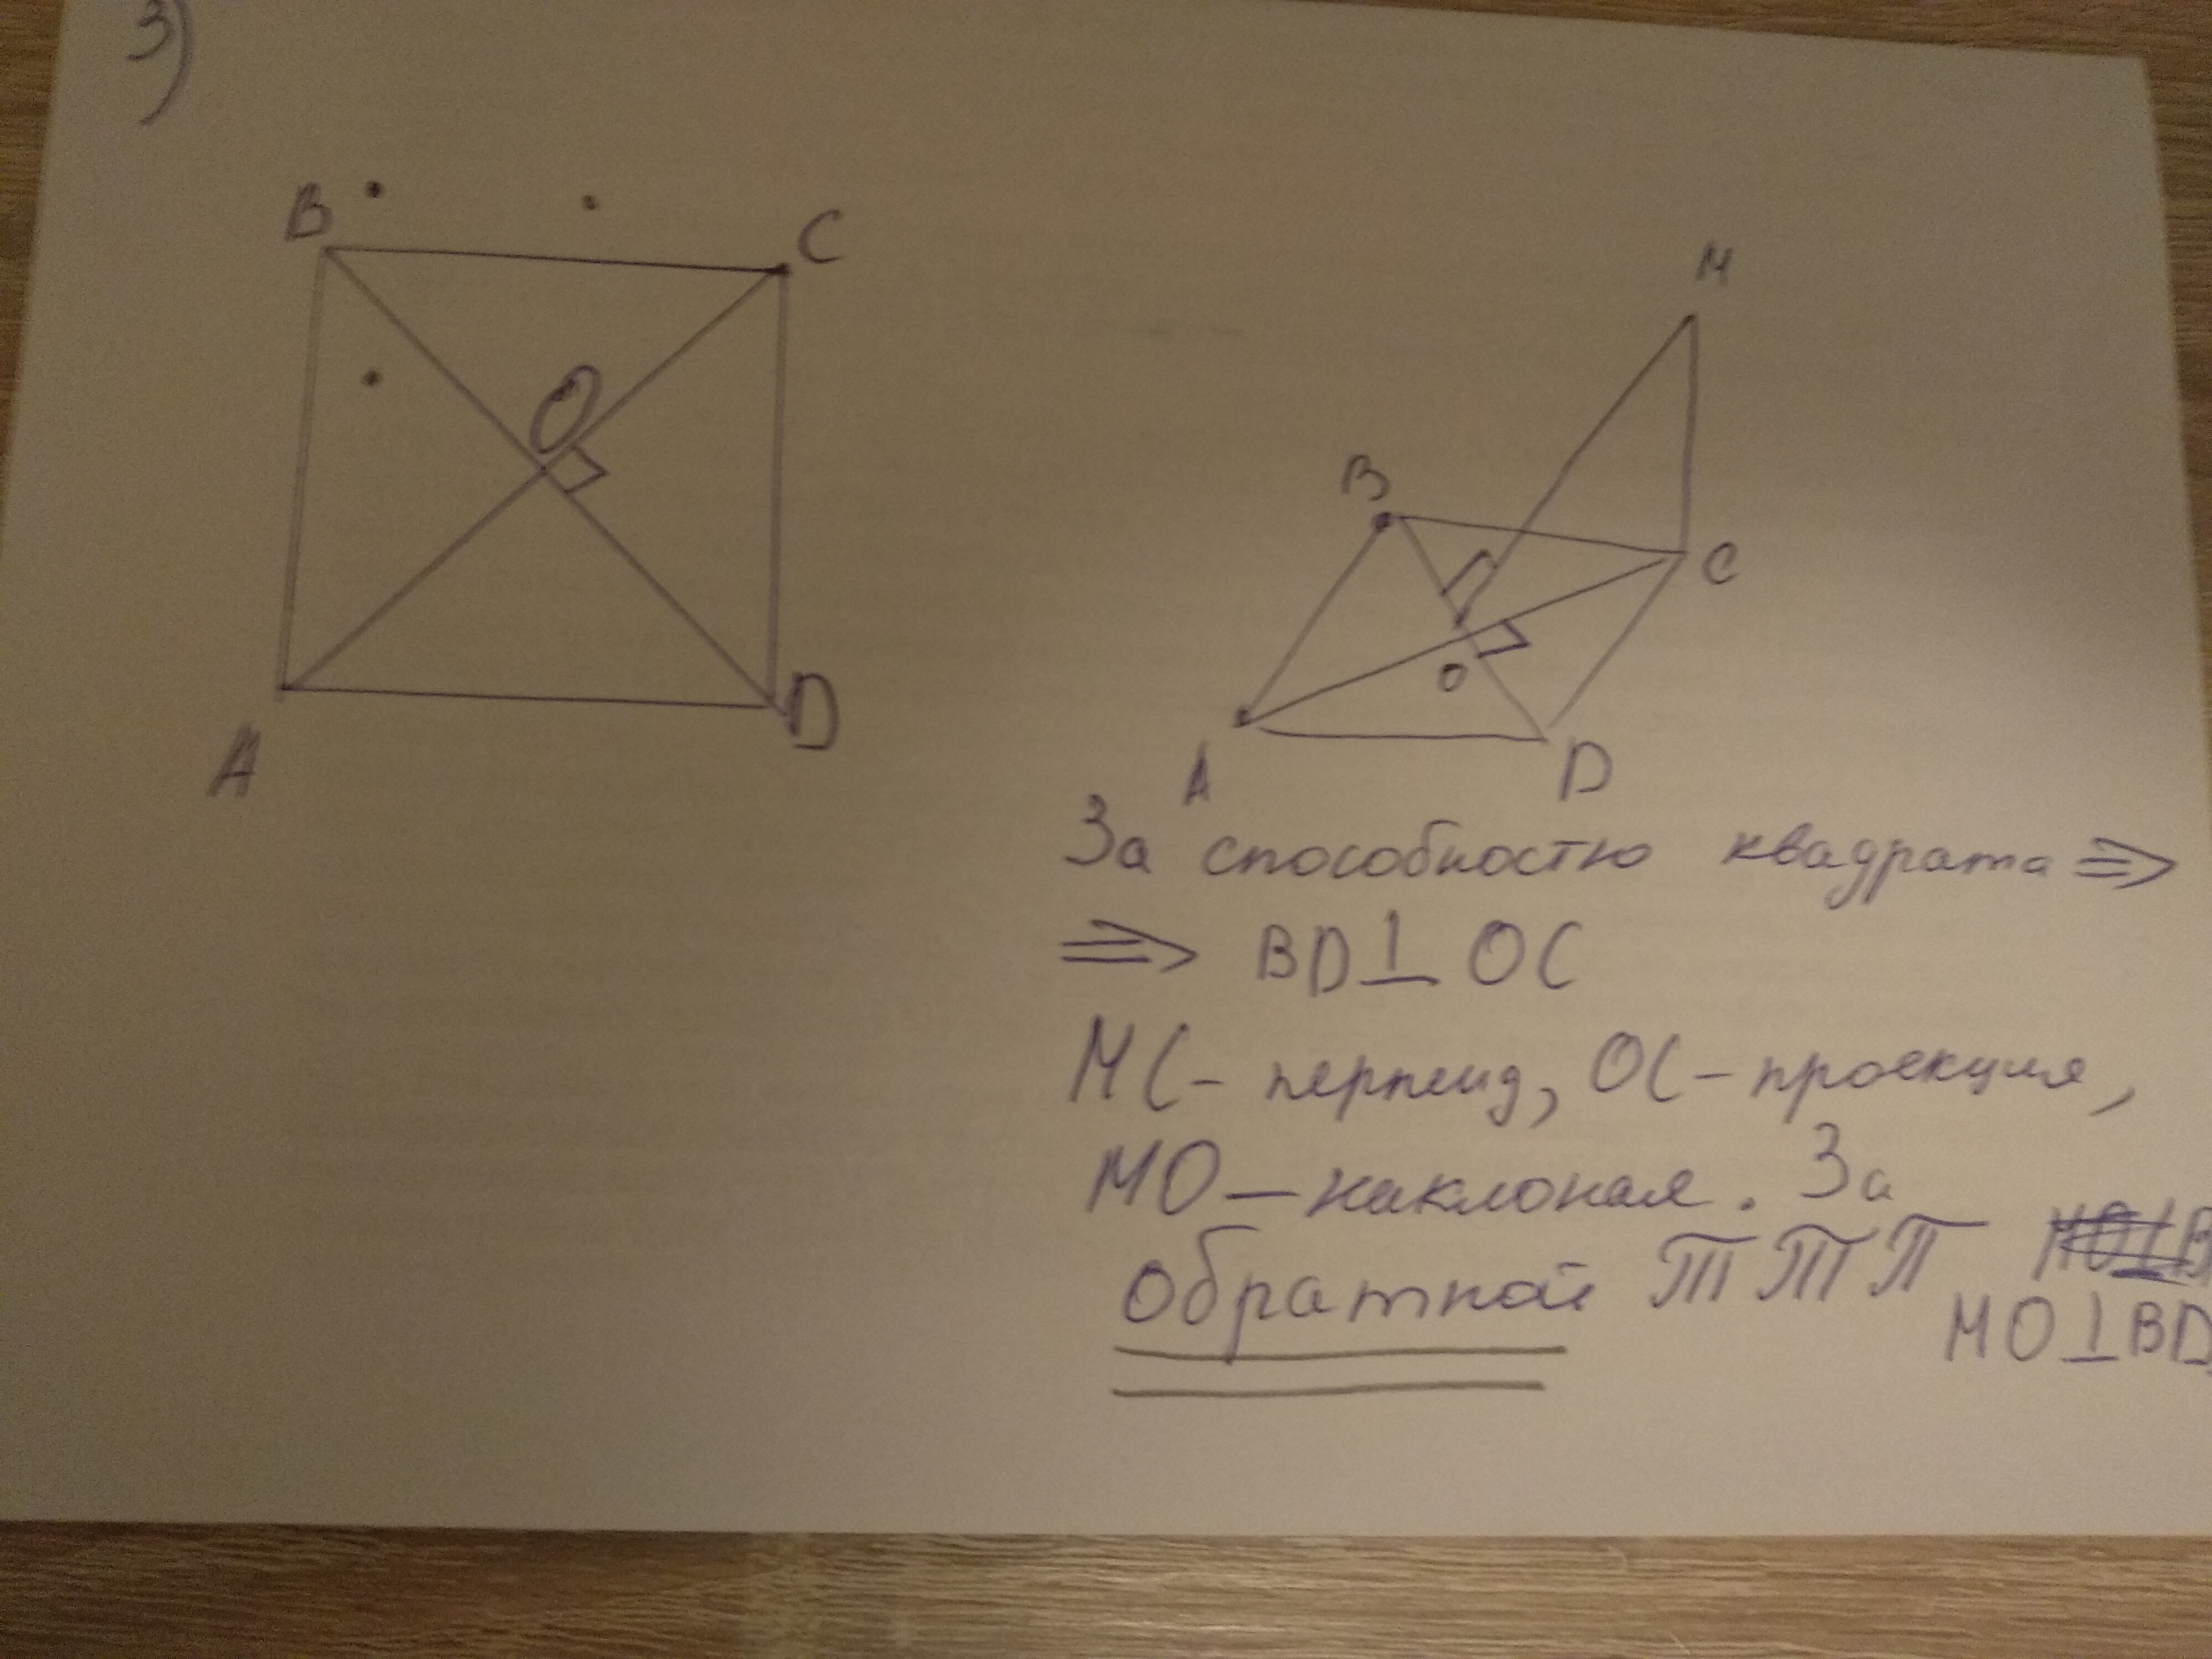 3)
B
C
O
A
D
M
B
C
O
A
D
За способностю квадрата =>
=> BD⊥OC
MC - перпенд, OC - проекция,
MO - наклоная. За
обратной ТТП MO⊥B
MO⊥BD